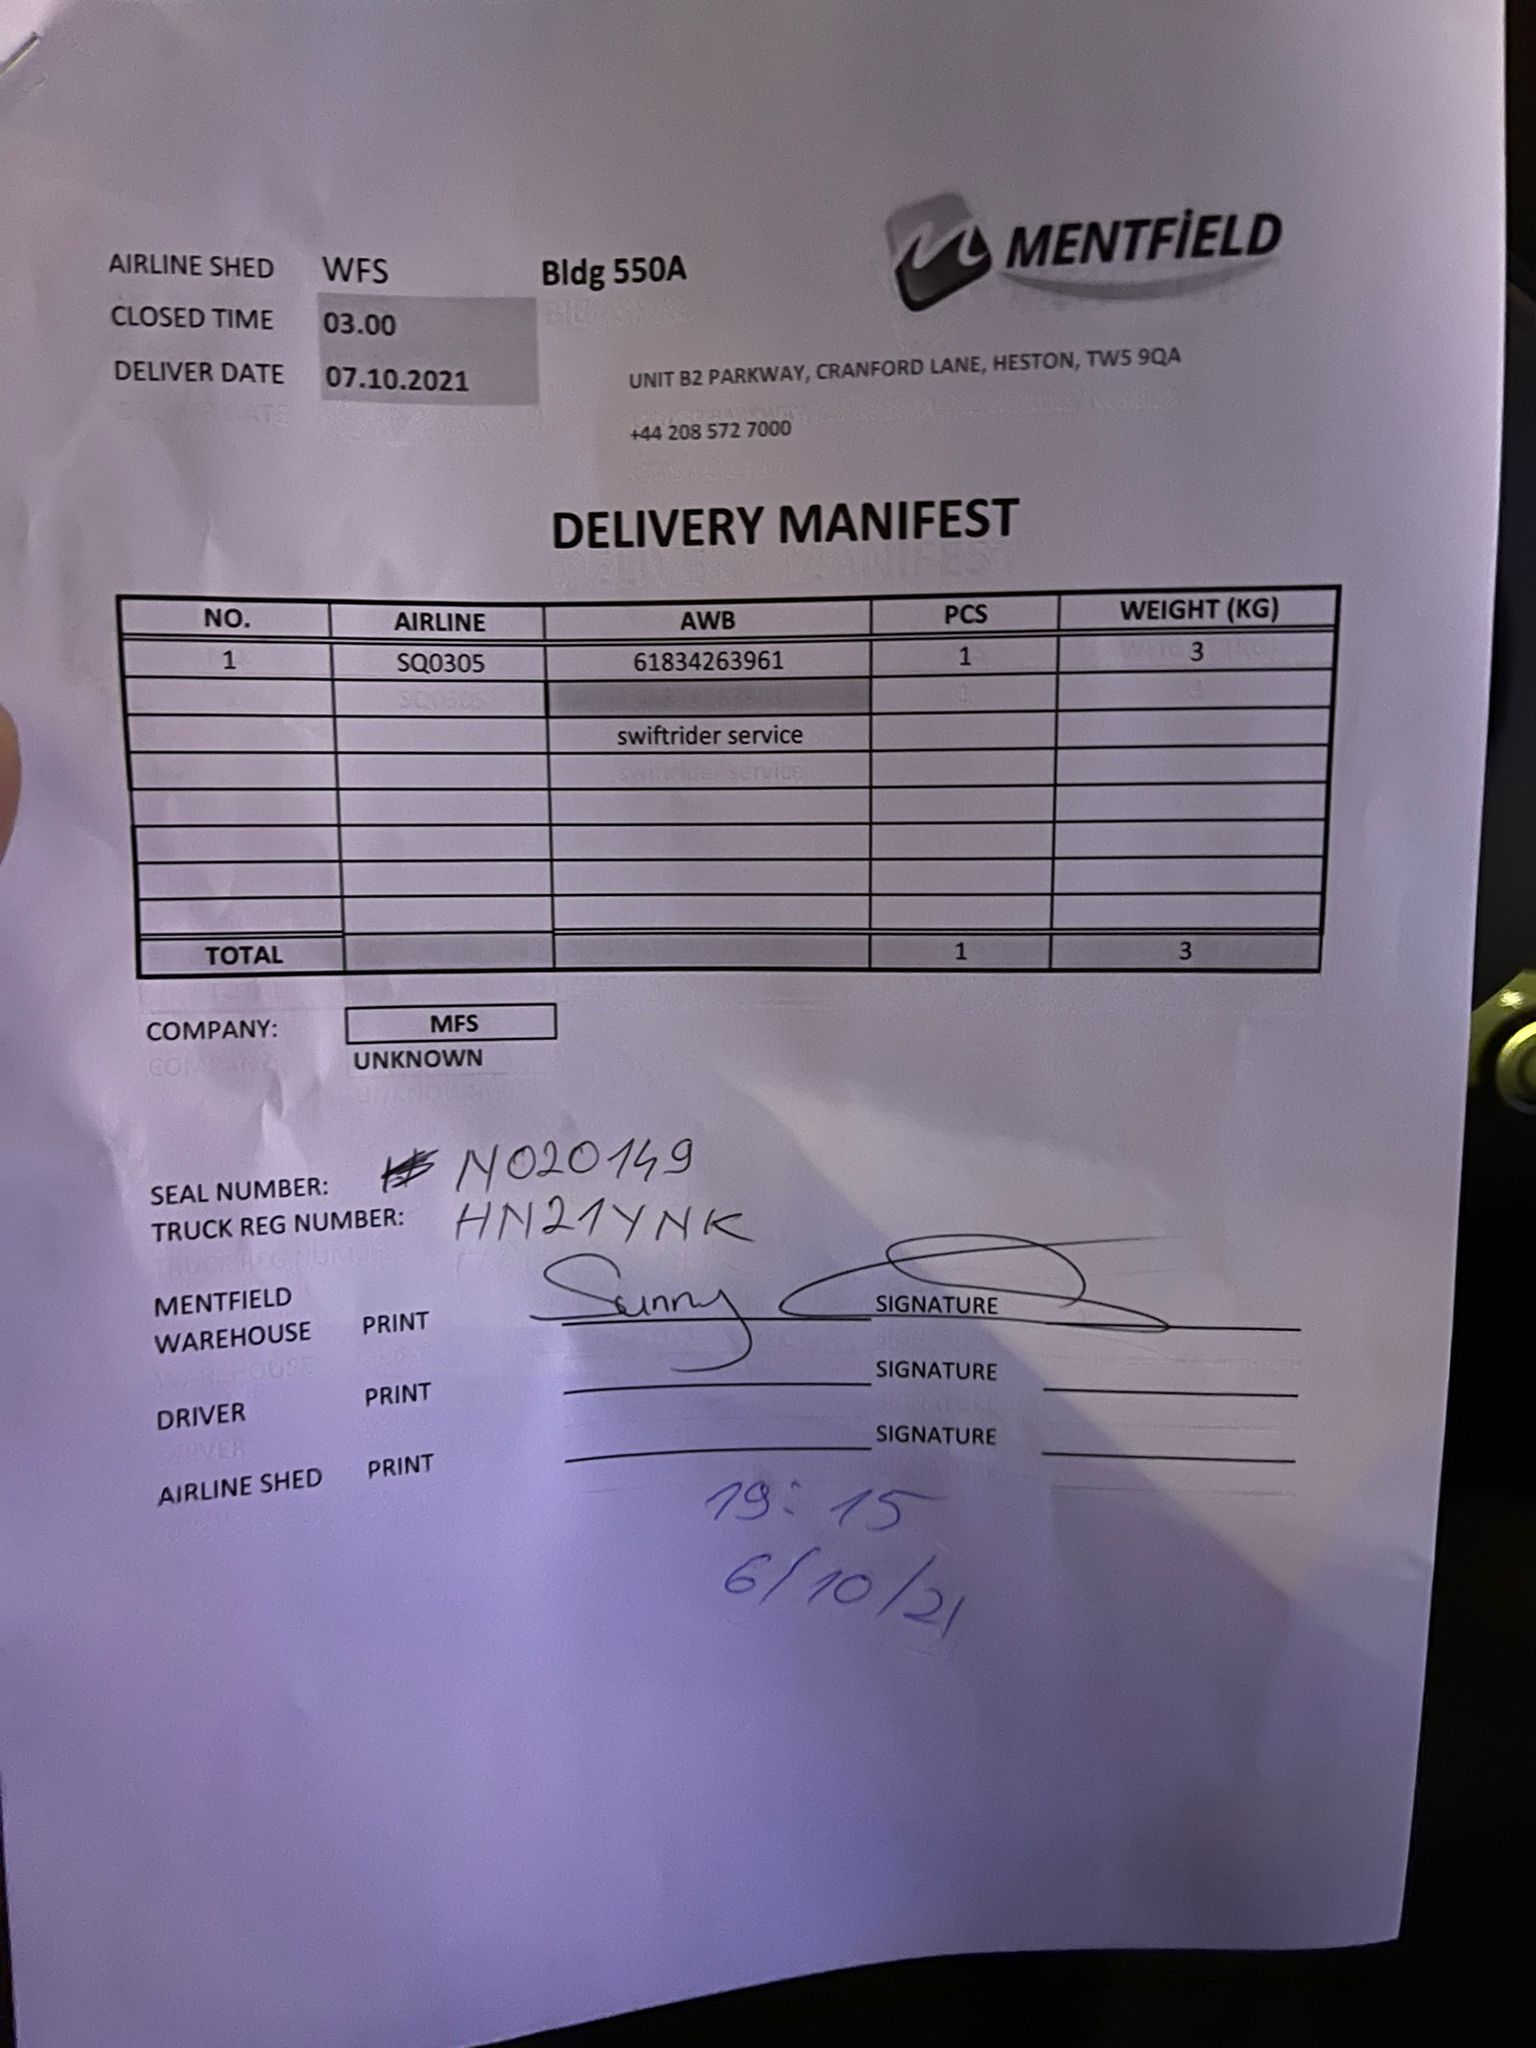 AIRLINE SHED WFS Bldg 550A
MENTFiELD
CLOSED TIME 03.00
DELIVER DATE 07.10.2021
UNIT B2 PARKWAY, CRANFORD LANE, HESTON, TW5 9QA
+44 208 572 7000
DELIVERY MANIFEST
NO. AIRLINE AWB PCS WEIGHT (KG)
1 SQ0305 61834263961 1 3
swiftrider service
TOTAL 1 3
COMPANY: MFS
UNKNOWN
SEAL NUMBER: N020149
TRUCK REG NUMBER: HN21YNK
MENTFIELD
WAREHOUSE PRINT Sunny SIGNATURE
DRIVER PRINT SIGNATURE
AIRLINE SHED PRINT SIGNATURE
19:15
6/10/21